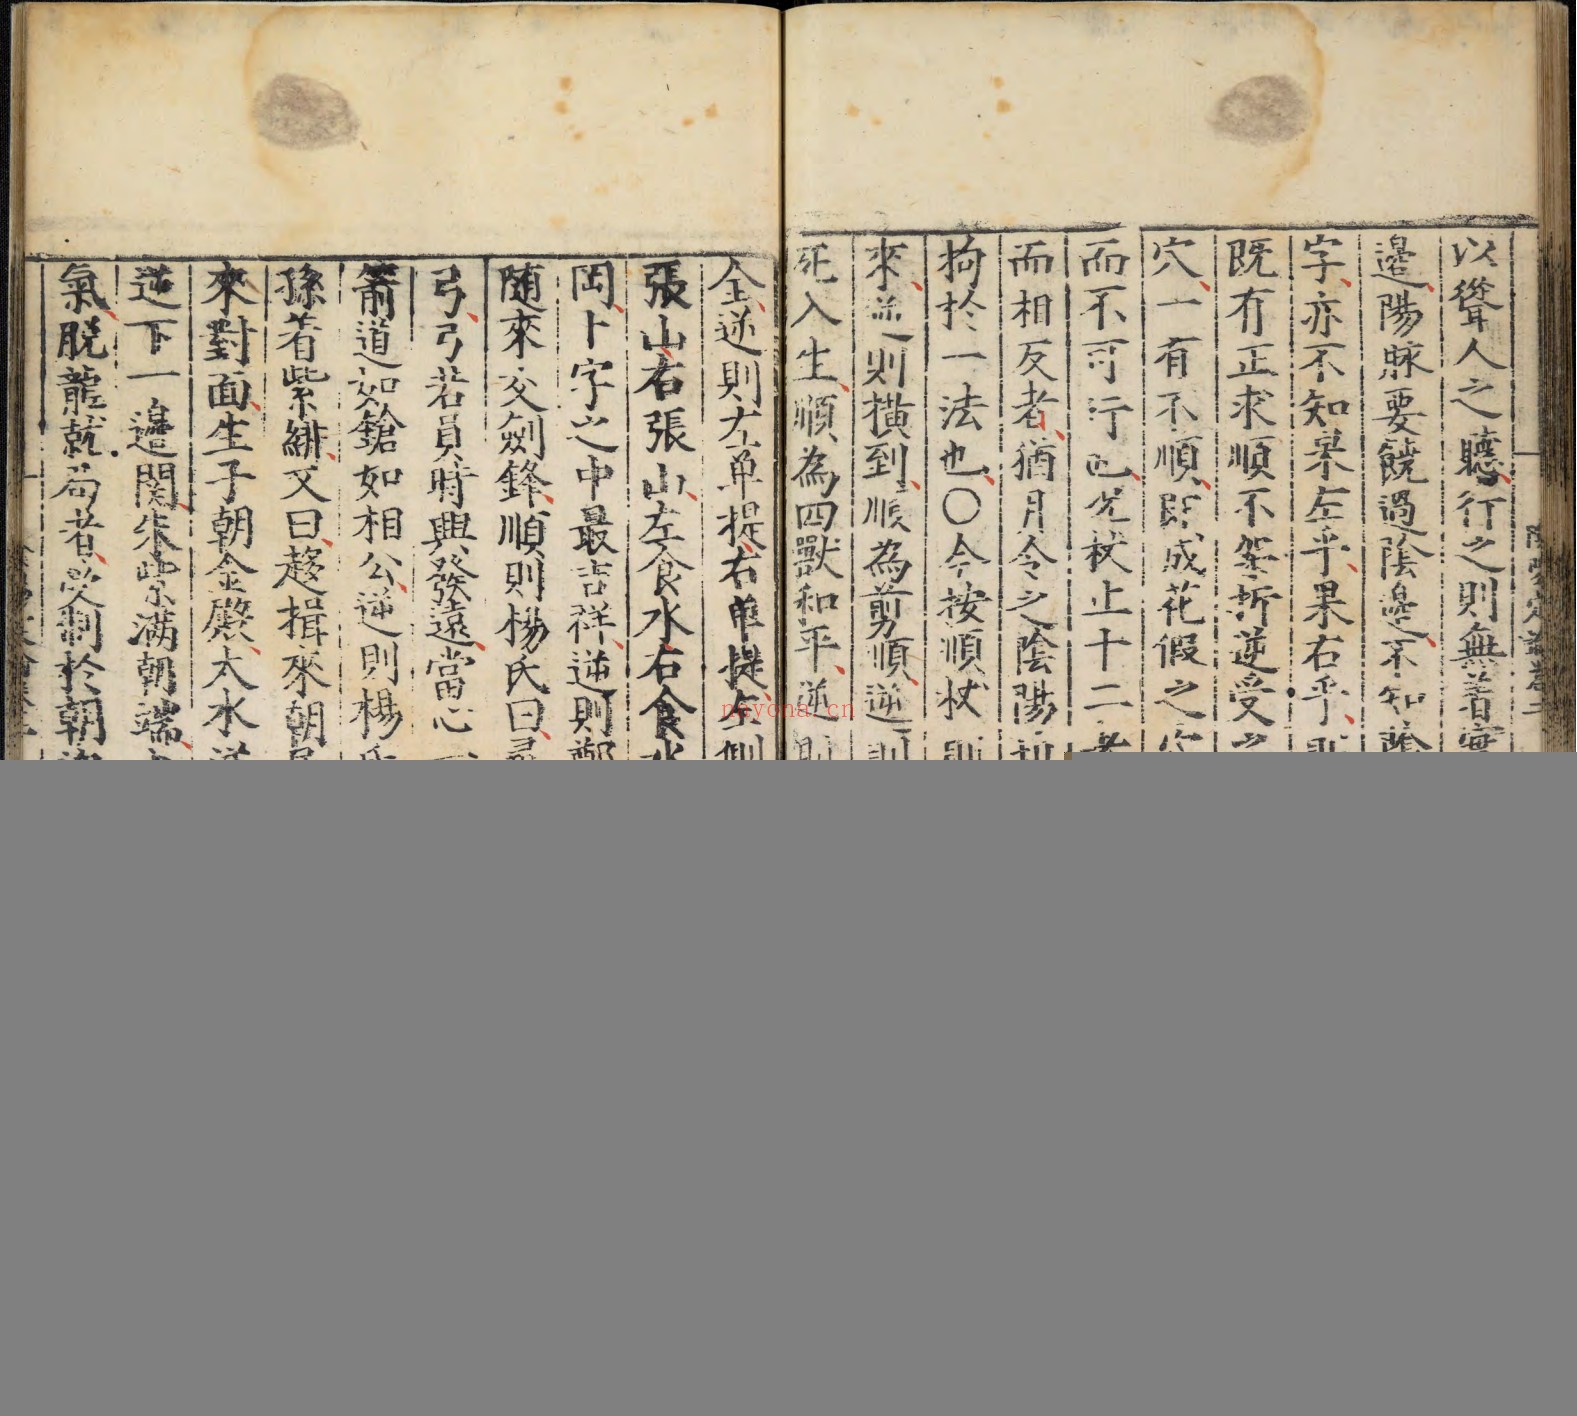 以聳人之聽行之則無着實
邊陽脉要饒過陰邊不知陰
字亦不知果左乎果右乎則
既有正求順不勞折逆受之
穴一有不順即成花假之穴
而不可行也况杖止十二者
而相反者猶月令之陰陽
拘於一法也○今按順杖則
來逆則橫到順為剪順逆則
死入生順為四獸和平逆則
全逆則左單提右單提左側
張山右張山左食水右食水
罔卜字之中最吉祥逆則鄭
随來交劍鋒順則楊氏曰
弓弓若員時興發遠當心
箭道如鎗如相公逆則楊氏
孫着紫緋又曰趍揖來朝
來對面生子朝金殿太水
逆下一邊関朱紫滿朝端
氣脱龍就局者受制於朝
nayona.cn